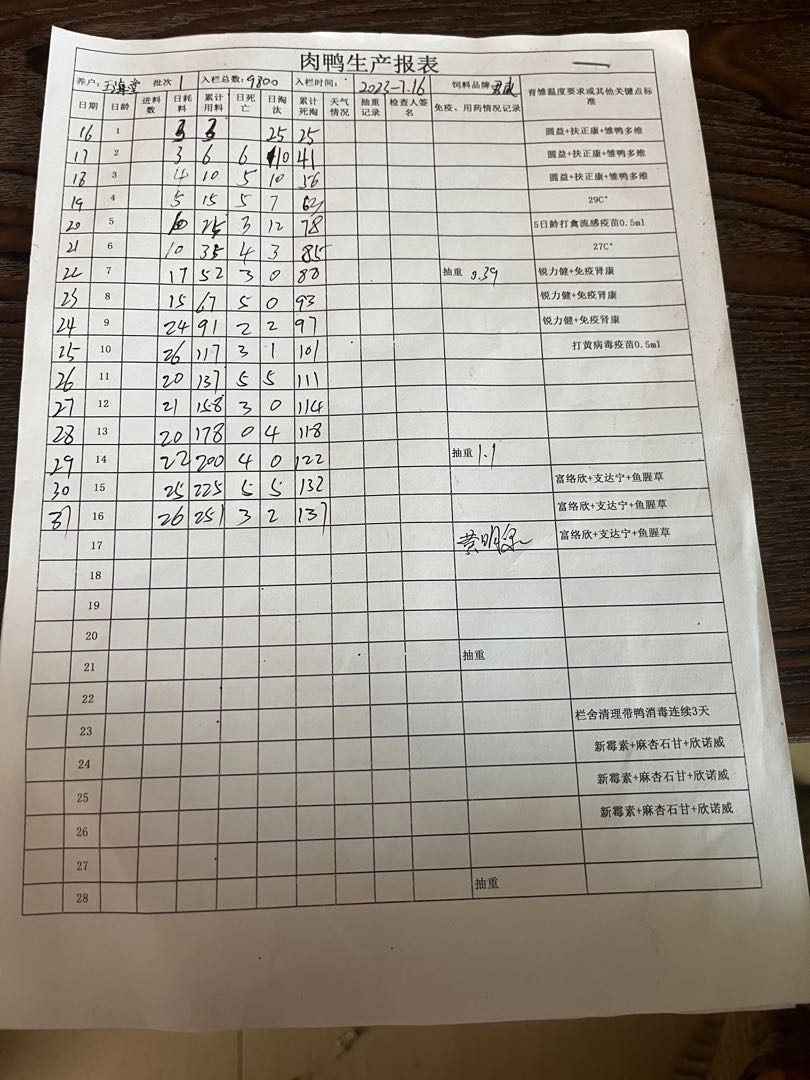 肉鸭生产报表
养户: 批次 1 入栏总数: 9800 入栏时间: 2023-7.16 饲料品牌 育雏温度要求或其他关键点标准
日期 日龄 进料数 日耗料 累计用料 日死亡 日淘汰 累计死淘 天气情况 抽重记录 检查人签名 免疫、用药情况记录
16 1 3 3 25 25 圆益+扶正康+雏鸭多维
17 2 3 6 6 10 41 圆益+扶正康+雏鸭多维
18 3 4 10 5 10 56 圆益+扶正康+雏鸭多维
19 4 5 15 5 7 29C°
20 5 10 25 3 12 78 5日龄打禽流感疫苗0.5ml
21 6 10 35 4 3 85 27C°
22 7 17 52 3 0 88 抽重 0.39 锐力健+免疫肾康
23 8 15 67 5 0 93 锐力健+免疫肾康
24 9 24 91 2 2 97 锐力健+免疫肾康
25 10 26 117 3 1 101 打黄病毒疫苗0.5ml
26 11 20 137 5 5 111
27 12 21 158 3 0 114
28 13 20 178 0 4 118
29 14 22 200 4 0 122 抽重 1.1
30 15 25 225 5 5 132 富络欣+支达宁+鱼腥草
31 16 26 251 3 2 137 富络欣+支达宁+鱼腥草
17 富络欣+支达宁+鱼腥草
18
19
20
21 抽重
22
23 栏舍清理带鸭消毒连续3天
24 新霉素+麻杏石甘+欣诺威
25 新霉素+麻杏石甘+欣诺威
26 新霉素+麻杏石甘+欣诺威
27
28 抽重